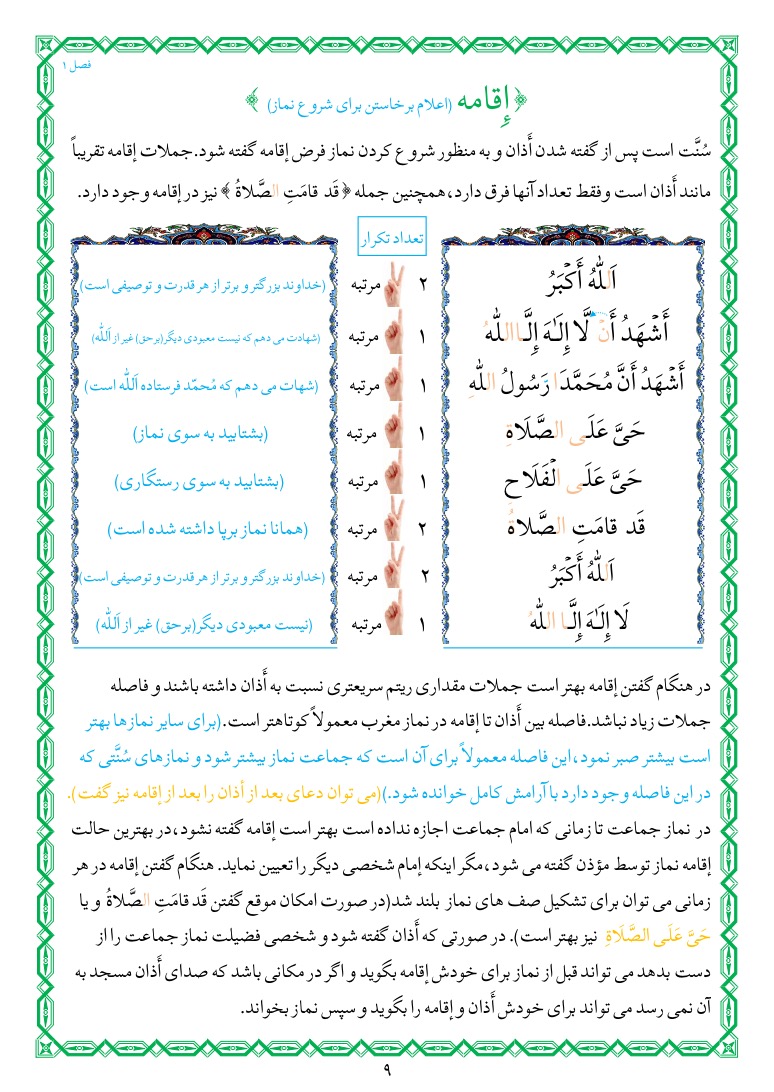 فصل ۱
﴿إِقامه (اعلام برخاستن برای شروع نماز) ﴾
سُنَّت است پس از گفته شدن أَذان و به منظور شروع کردن نماز فرض إقامه گفته شود.جملات إقامه تقریباً
مانند أَذان است وفقط تعداد آنها فرق دارد،همچنین جمله ﴿ قَد قامَتِ الصَّلاةُ ﴾ نیز در إقامه وجود دارد.
تعداد تکرار
اَللهُ أَكۡبَرُ ۲ مرتبه (خداوند بزرگتر و برتر از هر قدرت و توصیفی است)
أَشۡهَدُ أَنۡ لَّا إِلَـٰهَ إِلَّا اللهُ ۱ مرتبه (شهادت می دهم که نیست معبودی دیگر(برحق) غیر از اَلله)
أَشۡهَدُ أَنَّ مُحَمَّدَا رَّسُولُ اللهِ ۱ مرتبه (شهات می دهم که مُحمّد فرستاده اَلله است)
حَیَّ عَلَی الصَّلَاةِ ۱ مرتبه (بشتابید به سوی نماز)
حَیَّ عَلَی الۡفَلَاحِ ۱ مرتبه (بشتابید به سوی رستگاری)
قَد قامَتِ الصَّلاةُ ۲ مرتبه (همانا نماز برپا داشته شده است)
اَللهُ أَكۡبَرُ ۲ مرتبه (خداوند بزرگتر و برتر از هر قدرت و توصیفی است)
لَا إِلَـٰهَ إِلَّا اللهُ ۱ مرتبه (نیست معبودی دیگر(برحق) غیر از اَلله)
در هنگام گفتن إقامه بهتر است جملات مقداری ریتم سریعتری نسبت به أَذان داشته باشند و فاصله
جملات زیاد نباشد.فاصله بین أَذان تا إقامه در نماز مغرب معمولاً کوتاهتر است.(برای سایر نمازها بهتر
است بیشتر صبر نمود،این فاصله معمولاً برای آن است که جماعت نماز بیشتر شود و نمازهای سُنَّتی که
در این فاصله وجود دارد با آرامش کامل خوانده شود.)(می توان دعای بعد از أذان را بعد از إقامه نیز گفت).
در نماز جماعت تا زمانی که امام جماعت اجازه نداده است بهتر است إقامه گفته نشود،در بهترین حالت
إقامه نماز توسط مؤذن گفته می شود،مگر اینکه إمام شخصی دیگر را تعیین نماید. هنگام گفتن إقامه در هر
زمانی می توان برای تشکیل صف های نماز بلند شد(در صورت امکان موقع گفتن قَد قامَتِ الصَّلاةُ و یا
حَیَّ عَلَی الصَّلَاةِ نیز بهتر است). در صورتی که أَذان گفته شود و شخصی فضیلت نماز جماعت را از
دست بدهد می تواند قبل از نماز برای خودش إقامه بگوید و اگر در مکانی باشد که صدای أَذان مسجد به
آن نمی رسد می تواند برای خودش أَذان و إقامه را بگوید و سپس نماز بخواند.
۹